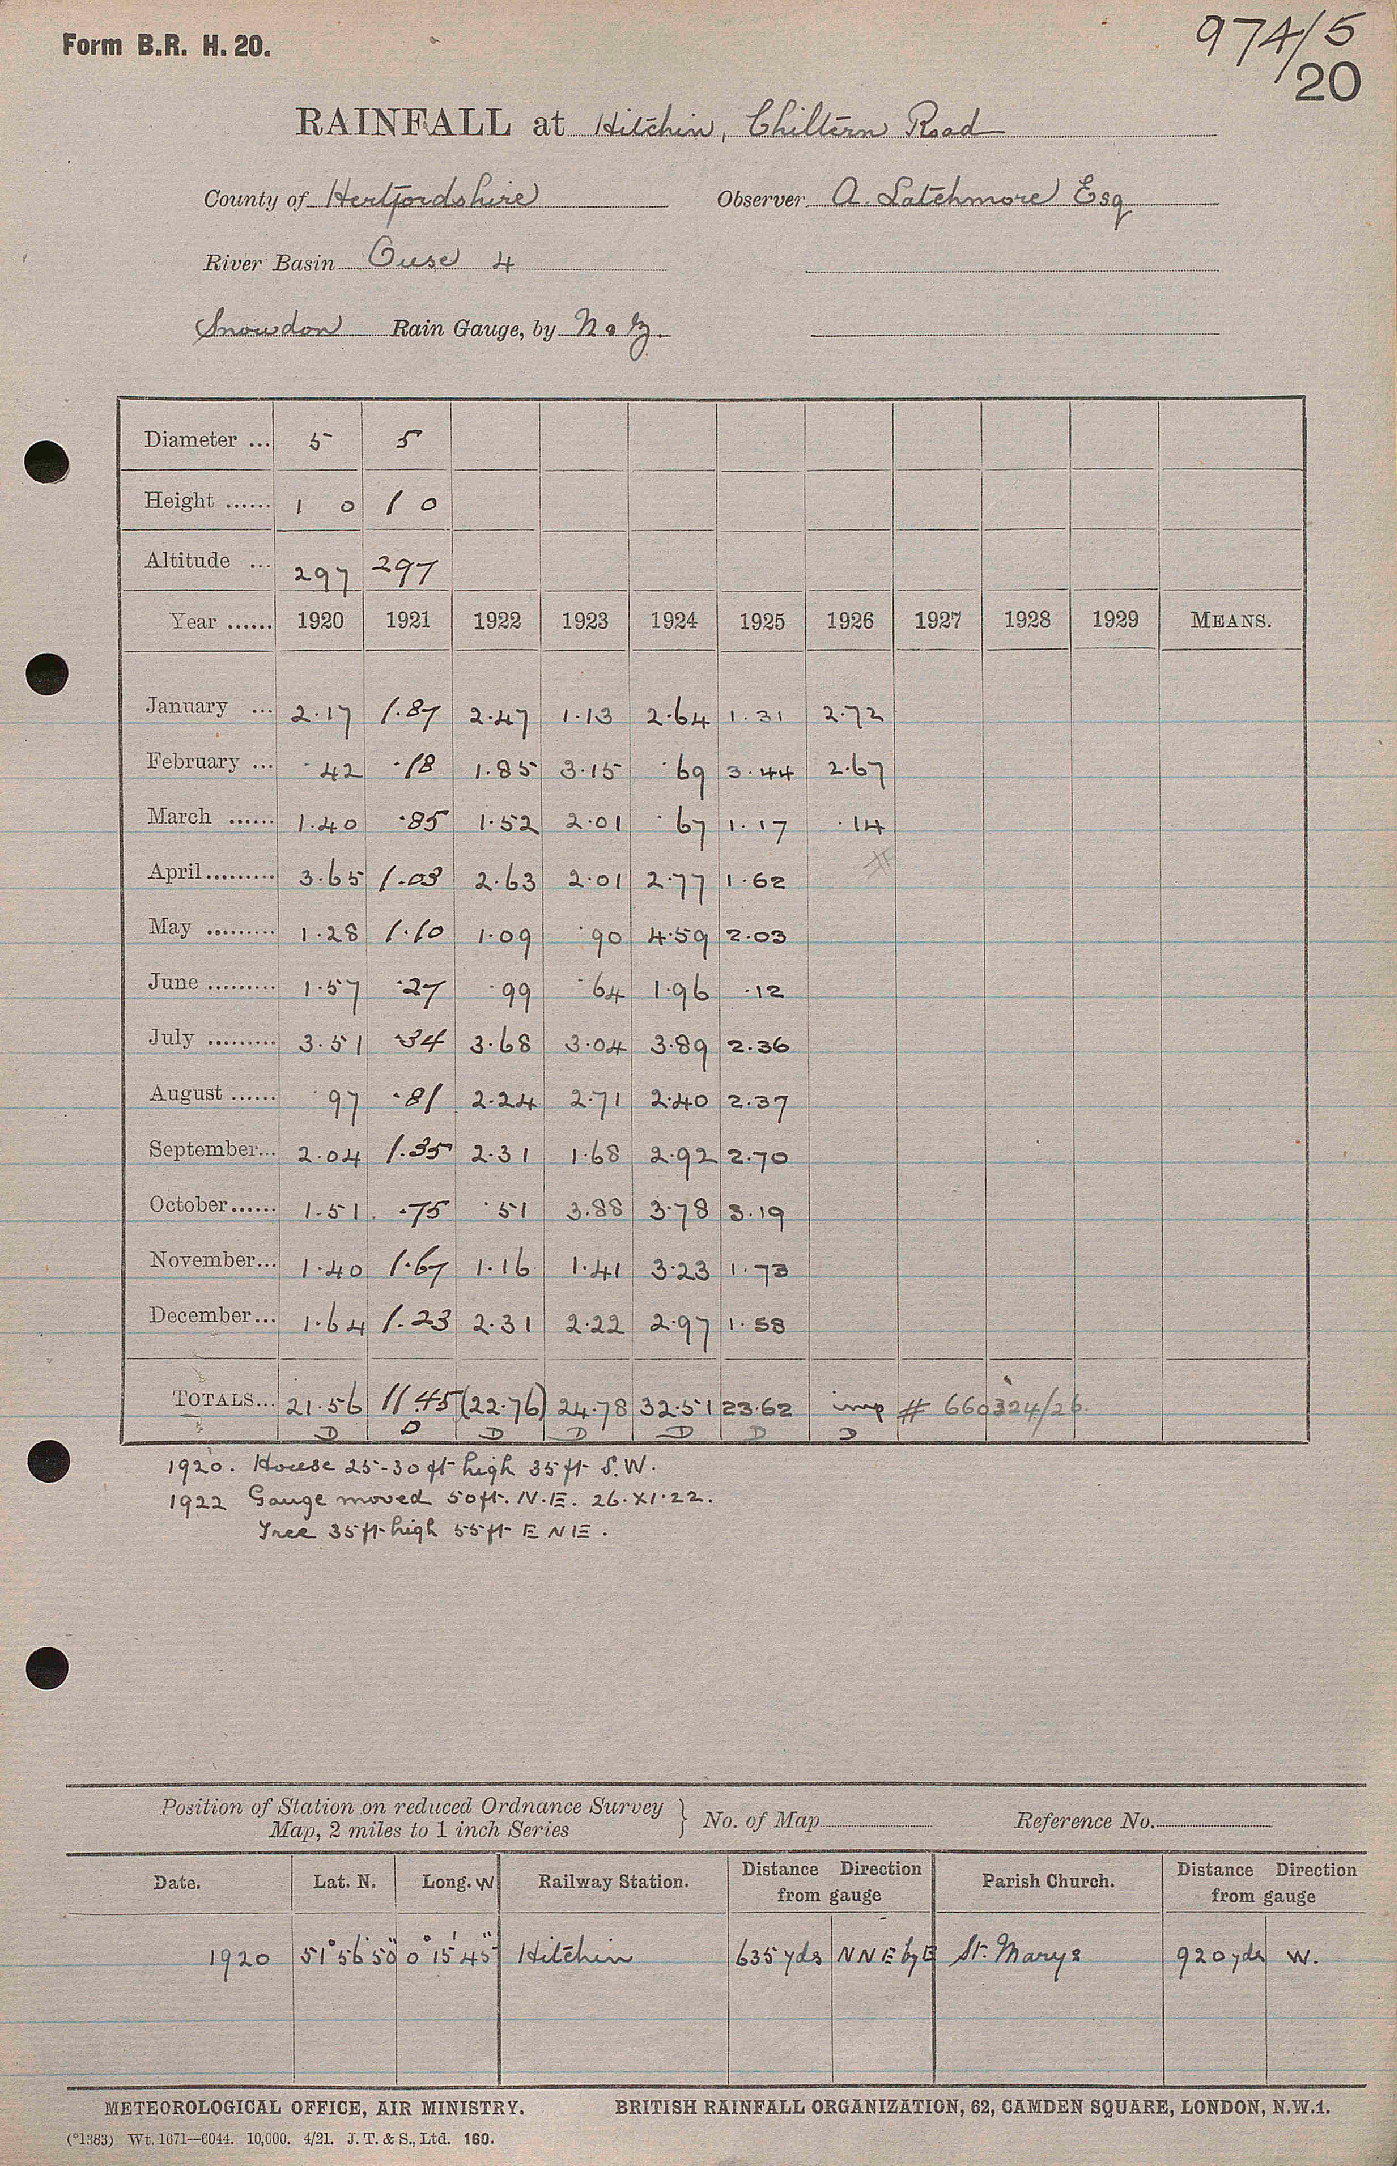 Form B.R. H. 20.
974/5
20
RAINFALL at Hitchin, Chiltern Road
County of Hertfordshire Observer A. Latchmore Esq
River Basin Ouse 4
Snowdon Rain Gauge, by N & Z.
Diameter ... 5 5
Height ...... 1 0 1 0
Altitude ... 297 297
Year ...... 1920 1921 1922 1923 1924 1925 1926 1927 1928 1929 MEANS.
January ... 2.17 1.87 2.47 1.13 2.64 1.31 2.72
February ... .42 .18 1.85 3.15 .69 3.44 2.67
March ...... 1.40 .85 1.52 2.01 .67 1.17 .14
April ......... 3.65 1.03 2.63 2.01 2.77 1.62 #
May ......... 1.28 1.10 1.09 .90 4.59 2.03
June ......... 1.57 .27 .99 .64 1.96 .12
July ......... 3.51 .34 3.68 3.04 3.89 2.36
August ...... .97 .81 2.24 2.71 2.40 2.37
September... 2.04 1.35 2.31 1.68 2.92 2.70
October...... 1.51 .75 .51 3.88 3.78 3.19
November... 1.40 1.67 1.16 1.41 3.23 1.73
December... 1.64 1.23 2.31 2.22 2.97 1.58
TOTALS... 21.56 11.45 (22.76) 24.78 32.51 23.62 imp # 660324/26.
D D D D D D D
1920. House 25-30ft high 35ft S.W.
1922 Gauge moved 50ft. N.E. 26.XI.22.
Tree 35ft high 55ft E N E.
Position of Station on reduced Ordnance Survey Map, 2 miles to 1 inch Series } No. of Map Reference No.
Date. Lat. N. Long. W Railway Station. Distance Direction from gauge Parish Church. Distance Direction from gauge
1920 51°56'50" 0°15'45" Hitchin 635 yds NNE by E St. Marys 920 yds W.
METEOROLOGICAL OFFICE, AIR MINISTRY. BRITISH RAINFALL ORGANIZATION, 62, CAMDEN SQUARE, LONDON, N.W.1.
(*1383) Wt. 1071—6044. 10,000. 4/21. J. T. & S., Ltd. 160.